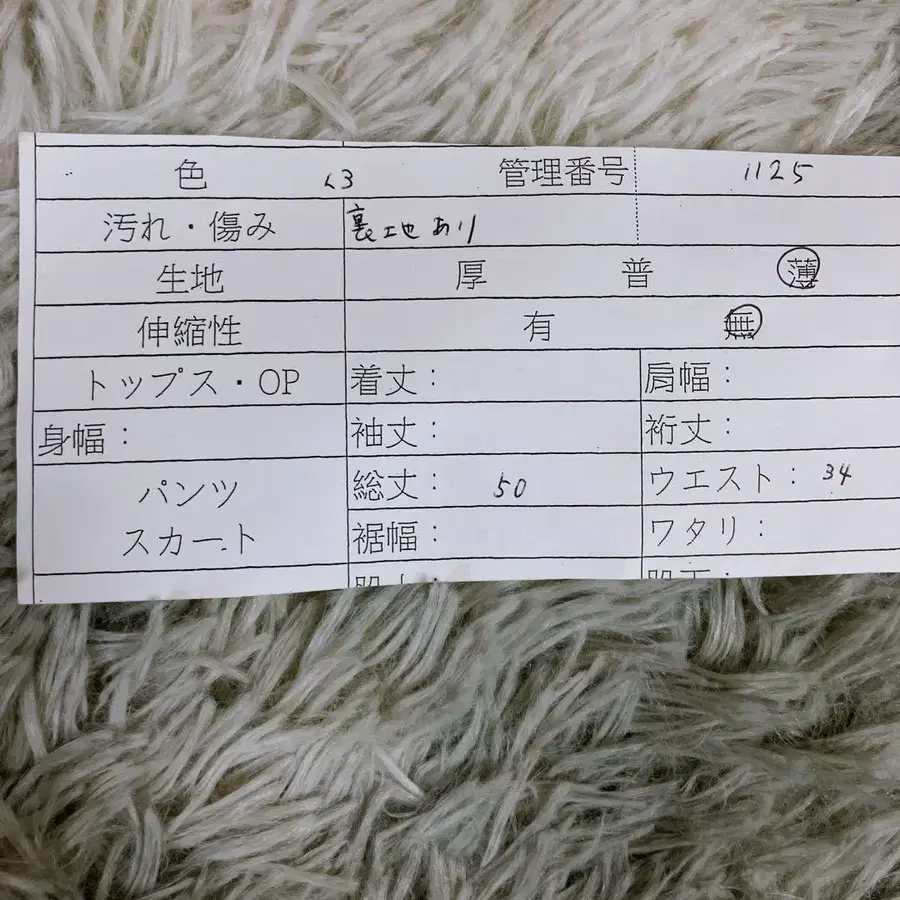 色 くろ 管理番号 1125
汚れ・傷み 裏地あり
生地 厚 普 薄
伸縮性 有 無
トップス・OP 着丈： 肩幅：
身幅： 袖丈： 裄丈：
パンツ 総丈： 50 ウエスト： 34
スカート 裾幅： ワタリ：